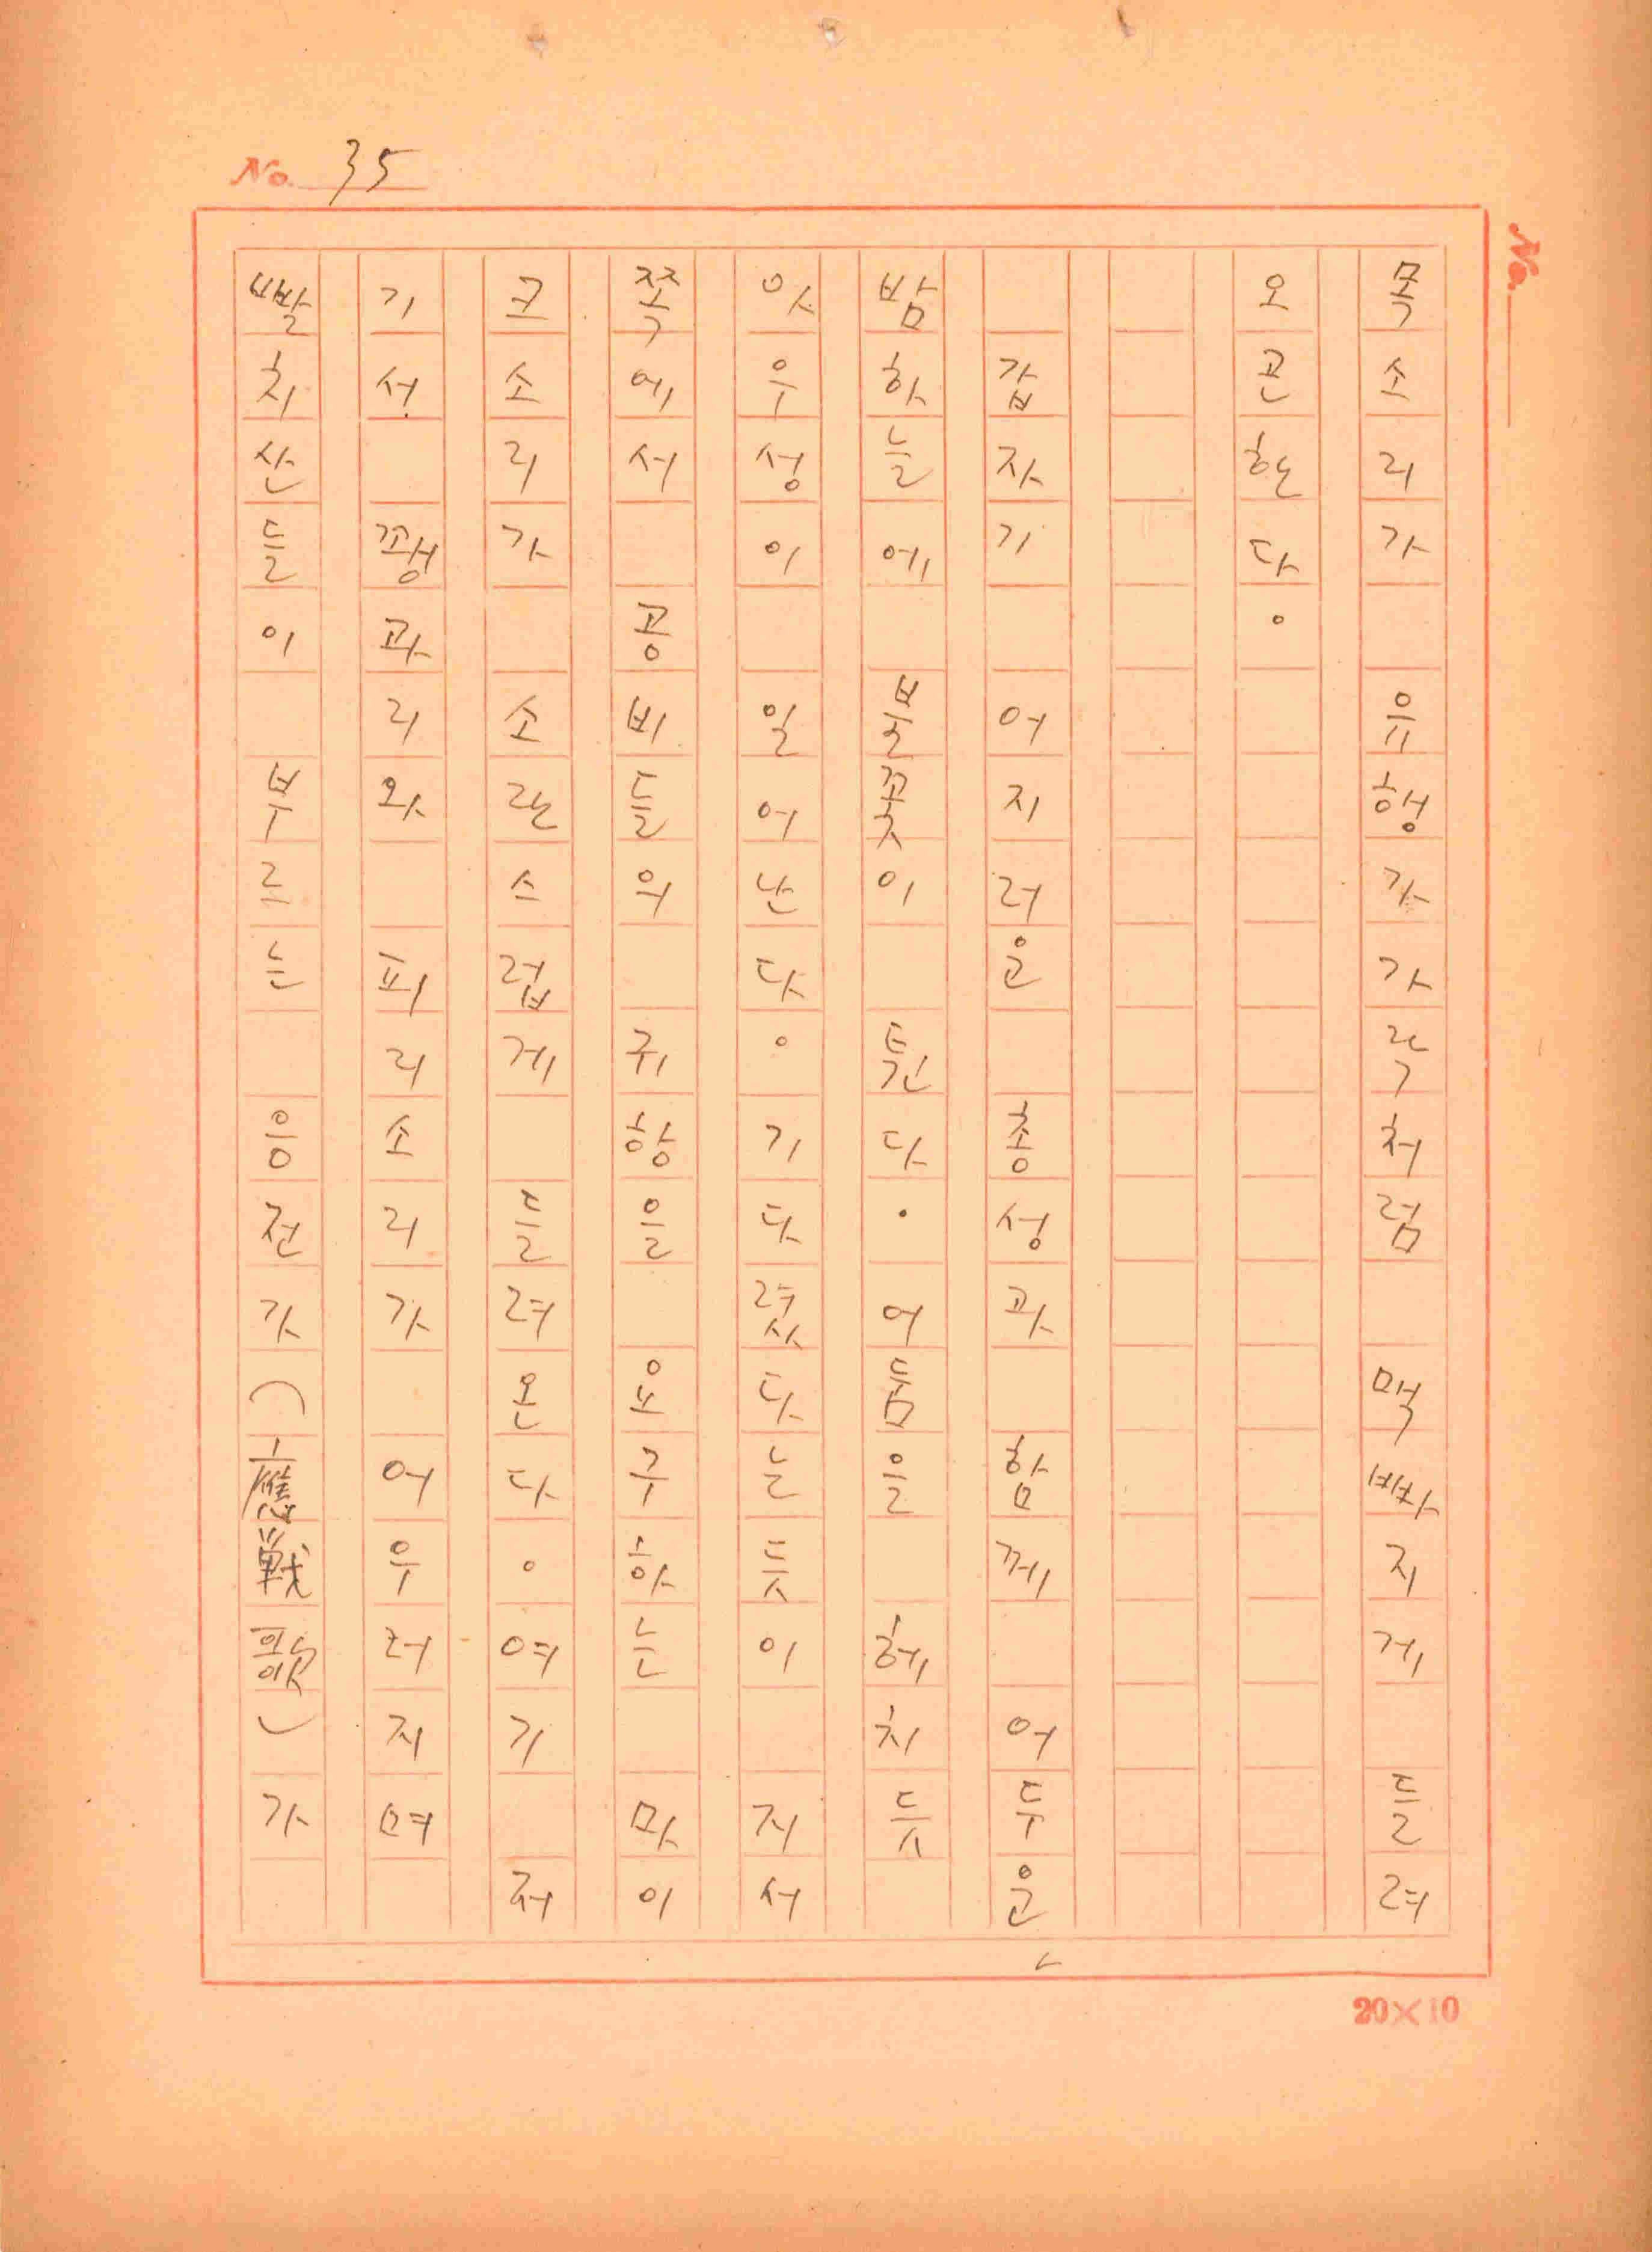 No. 35
No.
목소리가 유행가가락처럼 먹빠지게 들려
오곤한다。
갑자기 어지러운 총성과 함께 어두운
밤하늘에 불꽃이 튄다. 어둠을 헤치듯
아우성이 일어난다。기다렸다는듯이 저서
쪽에서 공비들의 귀항을 요구하는 마이
크소리가 소란스럽게 들려온다。여기 저
기서 꽹과리와 피리소리가 어우러지며
빨치산들이 부르는 응전가(應戦歌)가
20×10